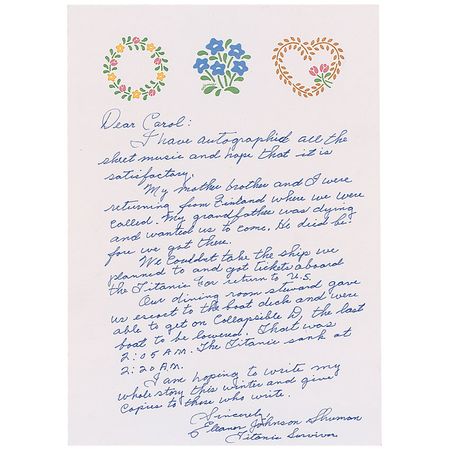 Dear Carol:
I have autographed all the
sheet music and hope that it is
satisfactory.
My mother brother and I were
returning from Finland where we were
called. My grandfather was dying
and wanted us to come. He died be-
fore we got there.
We couldn't take the ship we
planned to and got tickets aboard
the Titanic for return to U.S.
Our dining room steward gave
us escort to the boat deck and were
able to get on Collapsible D, the last
boat to be lowered. That was
2:05 A.M. The Titanic sank at
2:20 A.M.
I am hoping to write my
whole story this winter and give
copies to those who write.
Sincerely,
Eleanor Johnson Shuman
Titanic Survivor